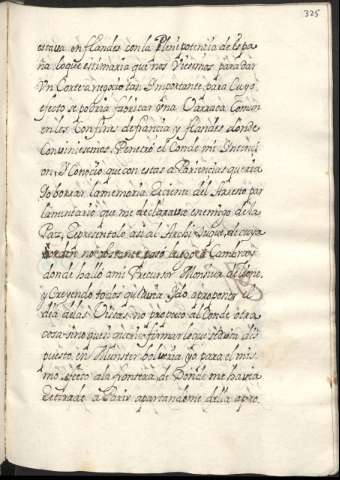 325
estaua en flandes con la Plenipotencia de Espa
ña lo que estimaria que nos Viesemos, para dar
Vn Corte a negocio tan Importante, para Cuyo
efecto se podria fabricar Vna Varraca Comun
en los Confines de francia y flandes donde
Conuiniesemos. Penetró el Conde mi Intenci
on, y Conoció que con estas apariencias queria
Yo borrar la memoria Reciente del Aresto par
lamentario que me declaraua enemigo de la
Paz, Representolo asi al Archiduque, de cuya
orden no obstante pasó luego a Cambray
donde halló a mi Precursor Monsiur de Lione,
y Creyendo todos que auia Ydo a proponer el
dia de las Vistas no propuso al Conde otra
cosa sino que si queria firmar lo que estaua dis
puesto en Munster bolueria yo para el mis
mo efecto a la frontera de Donde me hauia
Retirado a Paris apartandome della apre,